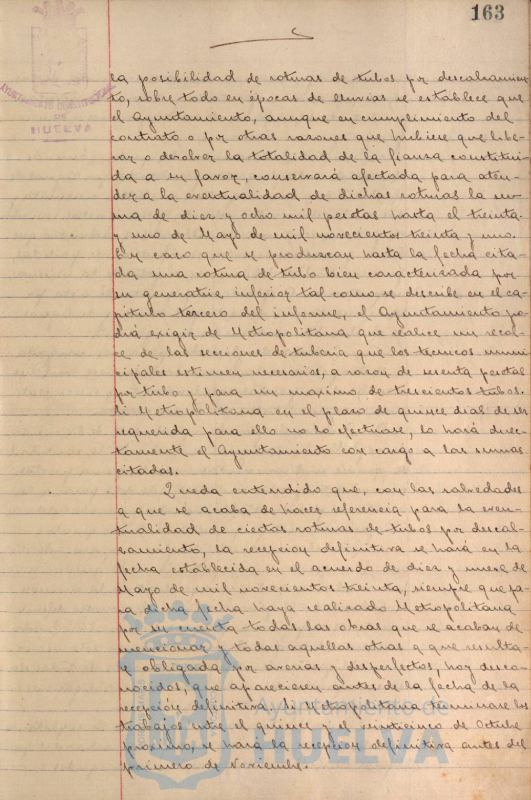 163
AYUNTAMIENTO CONSTITUCIONAL
DE
HUELVA
la posibilidad de roturas de tubos pr descalzamien-
to, sobre todo en épocas de lluvias se establece que
el Ayuntamiento, aunque en cumplimiento del
contrato o pr otras razones que hubiese que libe-
rar o devolver la totalidad de la fianza constitui-
da a su favor, conservará afectada para aten-
der a la eventualidad de dichas roturas la su-
ma de diez y ocho mil pesetas hasta el treinta
y uno de Mayo de mil novecientos treinta y uno.
En caso que se produzcan hasta la fecha cita-
da una rotura de tubo bien caracterizada por
su generatriz inferior tal como se describe en el ca-
pitulo tercero del informe, el Ayuntamiento po-
drá exigir de Metropolitana que realice un recal-
ce de las secciones de tuberia que los tecnicos muni-
cipales estimen necesarios, a razon de sesenta pesetas
pr tubo y para un maximo de trescientos tubos.
Si Metropolitana en el plazo de quince dias de ser
requerida para ello no lo efectuase, lo hará direc-
tamente el Ayuntamiento con cargo a las sumas
citadas.
Queda entendido que, con las salvedades
a que se acaba de hacer referencia para la even-
tualidad de ciertas roturas de tubos pr descal-
zamiento, la recepcion definitiva se hará en la
fecha establecida en el acuerdo de diez y nueve de
Mayo de mil novecientos treinta, siempre que pa-
ra dicha fecha haya realizado Metropolitana
por su cuenta todas las obras que se acaban de
mencionar y todas aquellas otras a que resulta-
se obligada por averias y desperfectos, hoy desco-
nocidos, que apareciesen antes de la fecha de la
recepcion definitiva. Si Metropolitana terminase los
trabajos entre el quince y el veinticinco de Octubre
proximo, se hará la recepcion definitiva antes del
primero de Noviembre.
Ayuntamiento de
HUELVA